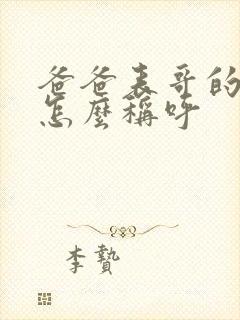 爸爸表哥的
怎麼稱呼
李贄